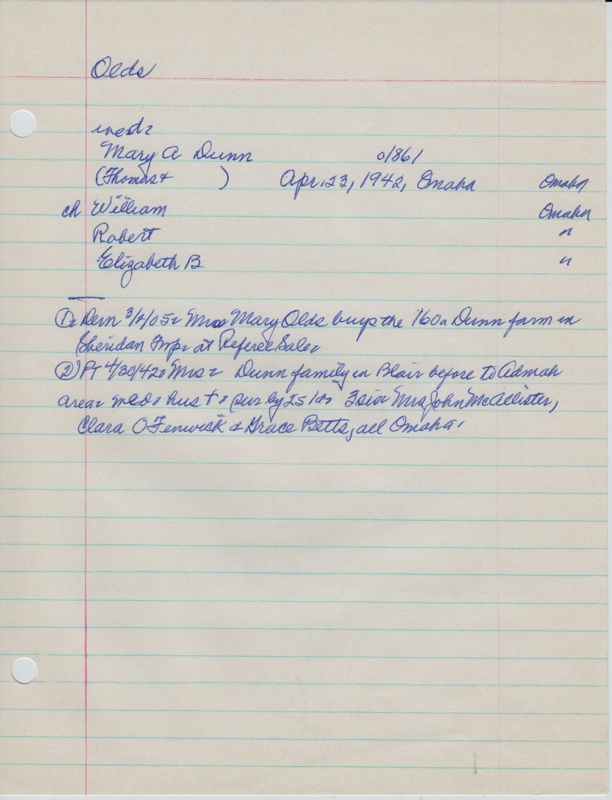 Olds
wed:
Mary A Dunn o/861
(Thomas + ) Apr. 23, 1942, Omaha Omaha
ch William Omaha
Robert "
Elizabeth B "
① Dem 3/ /05: Mrs Mary Olds buys the 160a Dunn farm in
Sheridan Twp: at Referee Sale:
② PT 4/30/42: Mrs: Dunn family in Blair before to Admah
area: wed: hus +: sur by 2s 1d: 3sis: Mrs John McAllister,
Clara O Fenwick & Grace Betts, all Omaha.